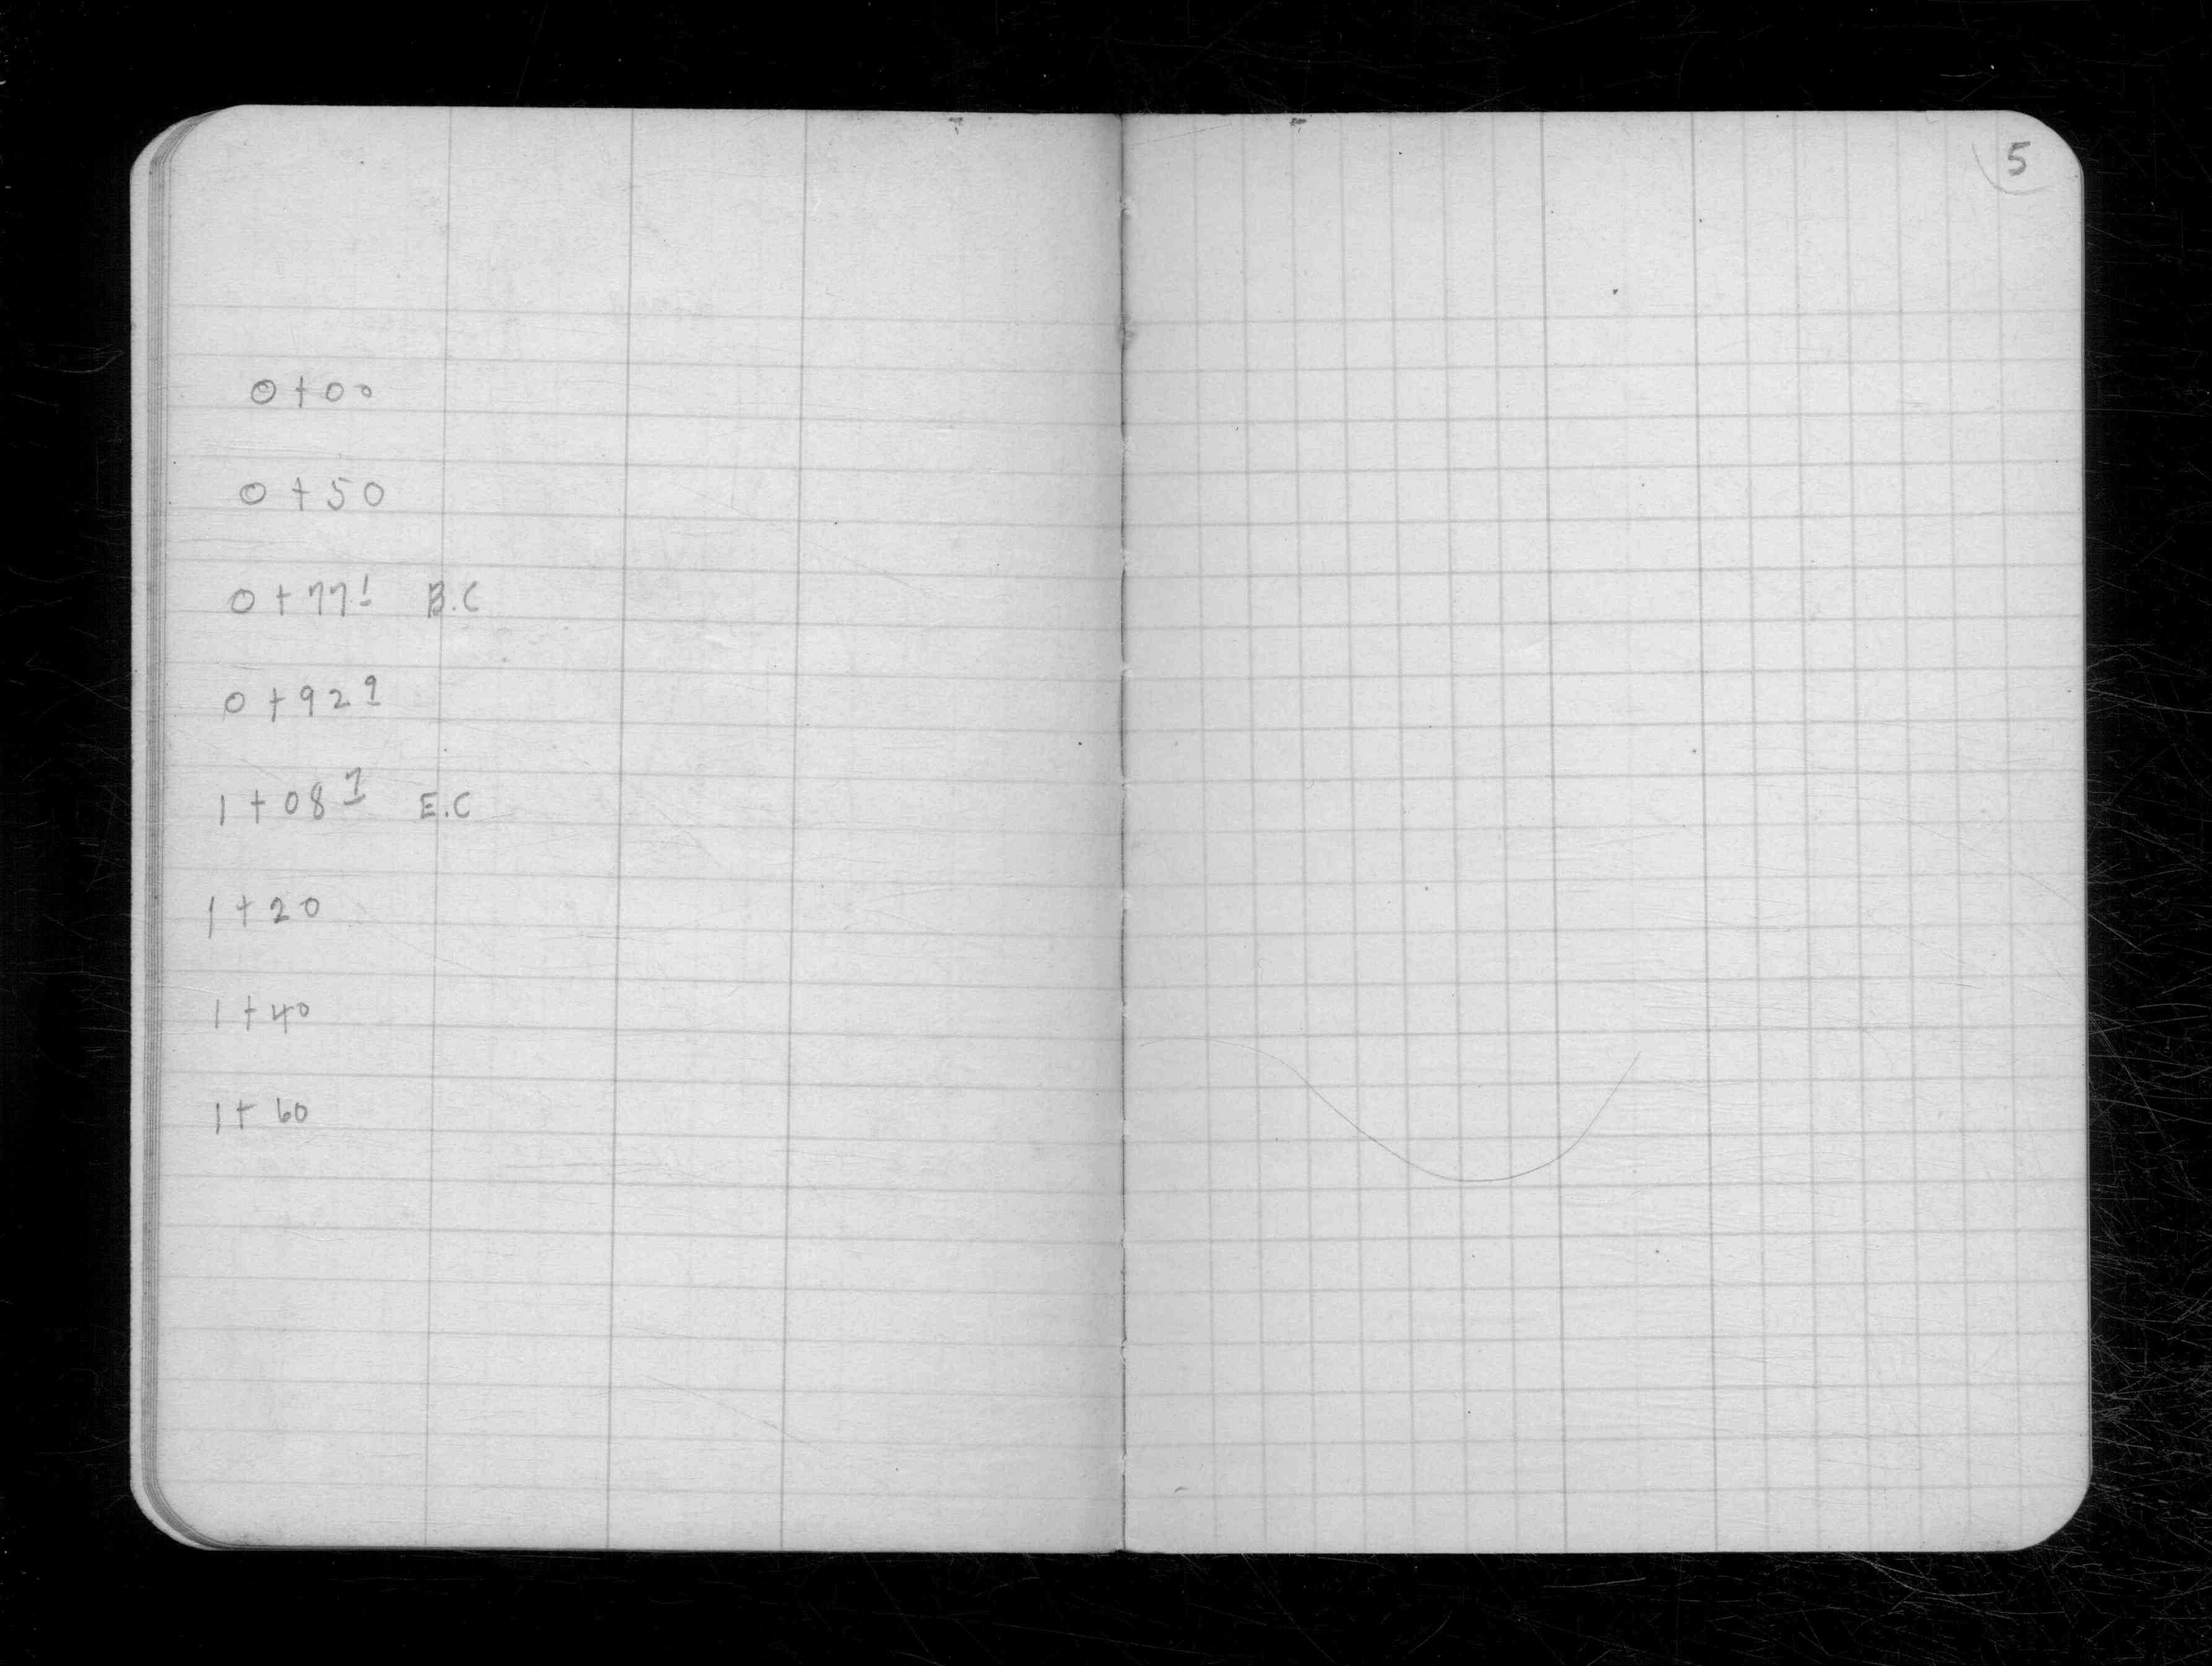 5
0+00
0+50
0+77.1 B.C
0+92 9
1+08 7 E.C
1+20
1+40
1+60